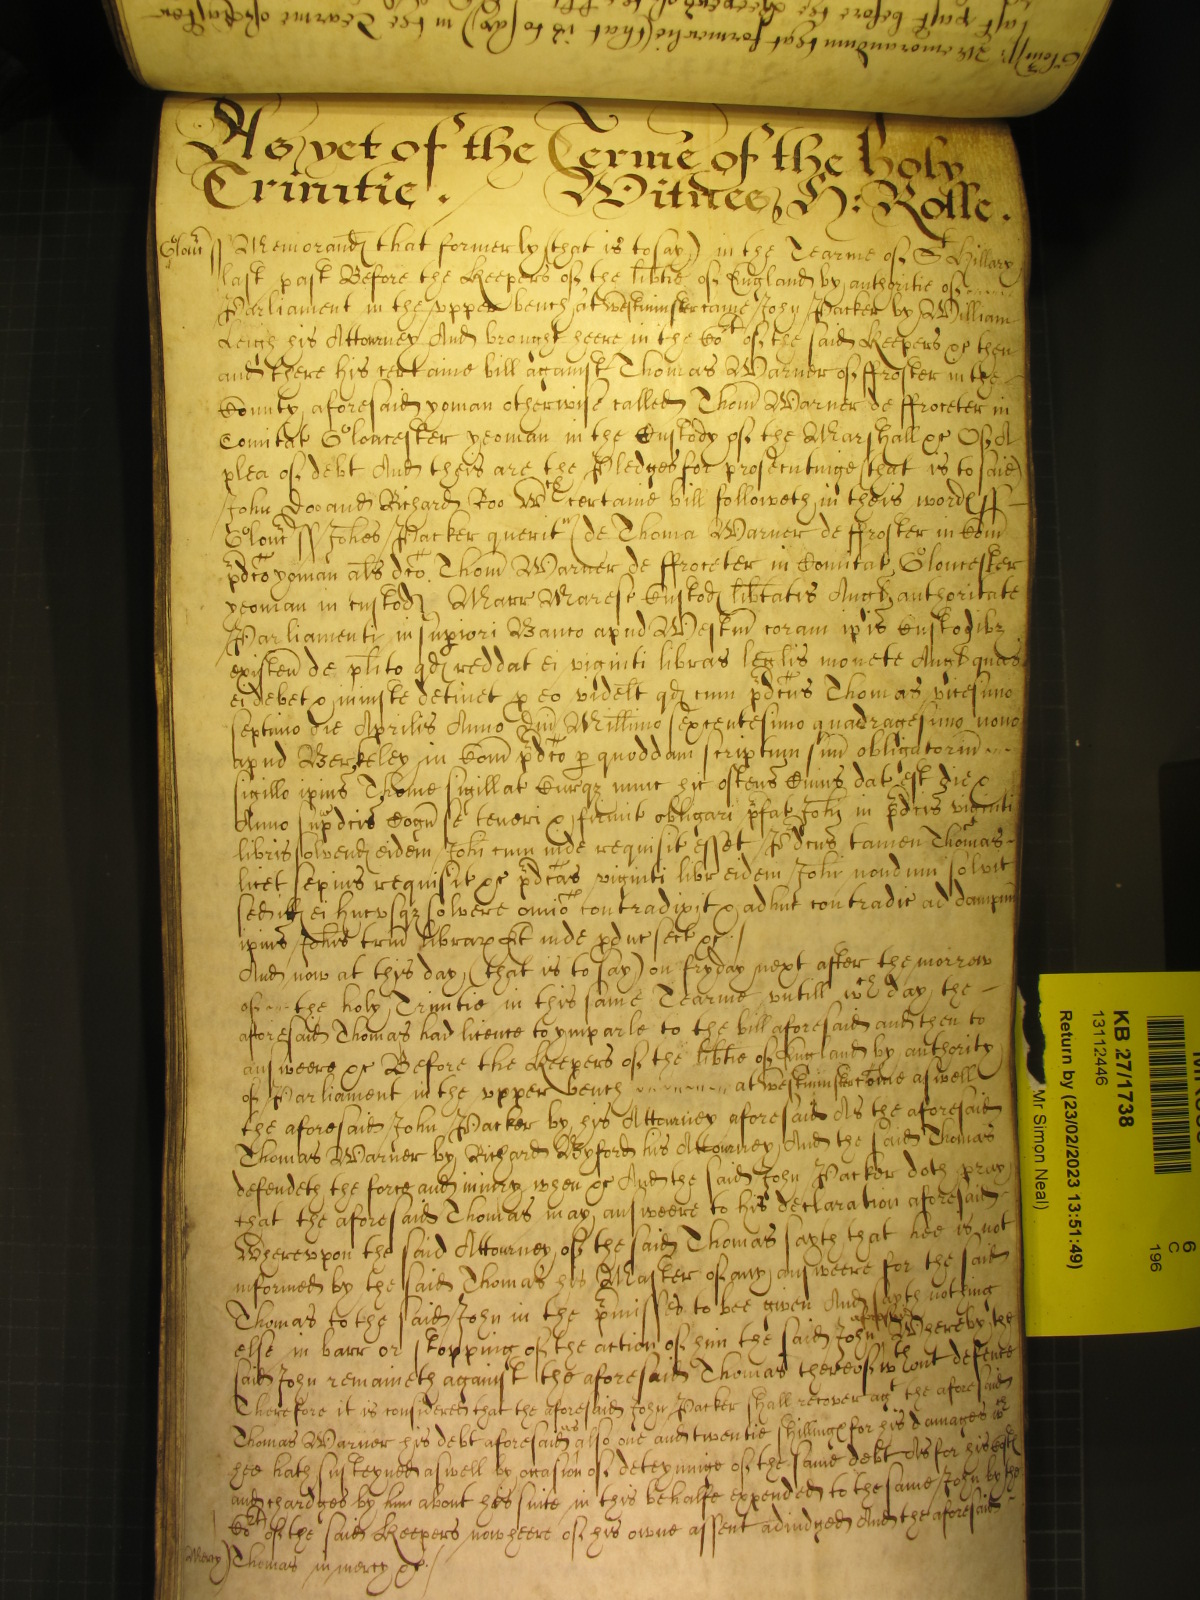 As yet of the Terme of the holy
Trinitie . / Witnes H: Rolle .
Glouc ss Memorand that formerly (that is to say) in the Tearme of St Hillary
last past Before the Keepers of the libtie of England by authoritie of
Parliament in the vpper bench at Westminster came John Packer by William
Leigh his Attourney And brought heere in the Cort of the said Keepers &c then
and there his certaine bill against Thomas Warner of ffroster in the
County aforesaid yoman otherwise called Thom Warner de ffroceter in
Comitat Gloucester yeoman in the Custody of the Marshall &c Of A
plea of debt And theis are the Pledges for prosecutinge (that is to saie)
John Doo and Richard Roo Wch certaine bill followeth in theis words ss
Glouc ss Johes Packer querit de Thoma Warner de ffroster in Com
pdco yoman als dco Thom Warner de ffroceter in Comitat Gloucester
yeoman in custod Marr Maresc Custod libtatis Angl authoritate
Parliamenti in supiori Banco apud Westm coram ipis Custodibz
existen de plito qd reddat ei viginti libras leglis monete Angl quas
ei debet & iniuste detinet p eo videlt qd cum pdcus Thomas vicesimo
septimo die Aprilis Anno Dm Millimo sexcentesimo quadragesimo nono
apud Berkeley in Com pdco p quoddam scriptum suu obligatoriu
sigillo ipius Thome sigillat Curieqz nunc hic ostens Cuius dat est die &
Anno supdcis Cogn se teneri & firmit obligari pfat Johi in pdcis viginti
libris solvend eidem Johi cum inde requisit esset Pdcus tamen Thomas
licet sepius requisit &c pdcas viginti libr eidem Johi nondum solvit
sed ill ei hucvsqz solvere omio contradixit & adhuc contradic ad dampnu
ipius Johis triu librar Et inde pduc sect &c /
And now at this day (that is to say) on fryday next after the morrow
of the holy Trinitie in this same Tearme vntill wch day the
aforesaid Thomas had licence to ymparle to the bill aforesaid and then to
answeere &c Before the Keepers of the libtie of England by authority
of Parliament in the vpper bench at Westminster come aswell
the aforesaid John Packer by his Attourney aforesaid As the aforesaid
Thomas Warner by Richard Byford his Attourney And the said Thomas
defendeth the force and iniury when &c And the said John Packer doth pray
that the aforesaid Thomas may answeere to his declaration aforesaid
Wherevpon the said Attourney of the said Thomas sayth that hee is not
informed by the said Thomas his Master of any answeere for the said
Thomas to the said John in the pmisses to bee given And sayth nothing
else in barr or stopping of the action of him the said John aforesaid Whereby the
said John remaineth against the aforesaid Thomas thereof wthout defence
Therefore it is considered that the aforesaid John Packer shall recover agt the aforesaid
Thomas Warner his debt aforesaid as also one and twentie shillings for his damages wch
hee hath susteyned aswell by occasion of deteyninge of the same debt As for his Costs
and chardges by him about his suite in this behalfe expended to the same John by the
Cort of the said Keepers now heere of his owne assent adiudged And the aforesaid
Mercy) Thomas in mercy &c /
KB 27/1738
13112446
Return by (23/02/2023 13:51:49)
Mr Simon Neal)
6
C
196